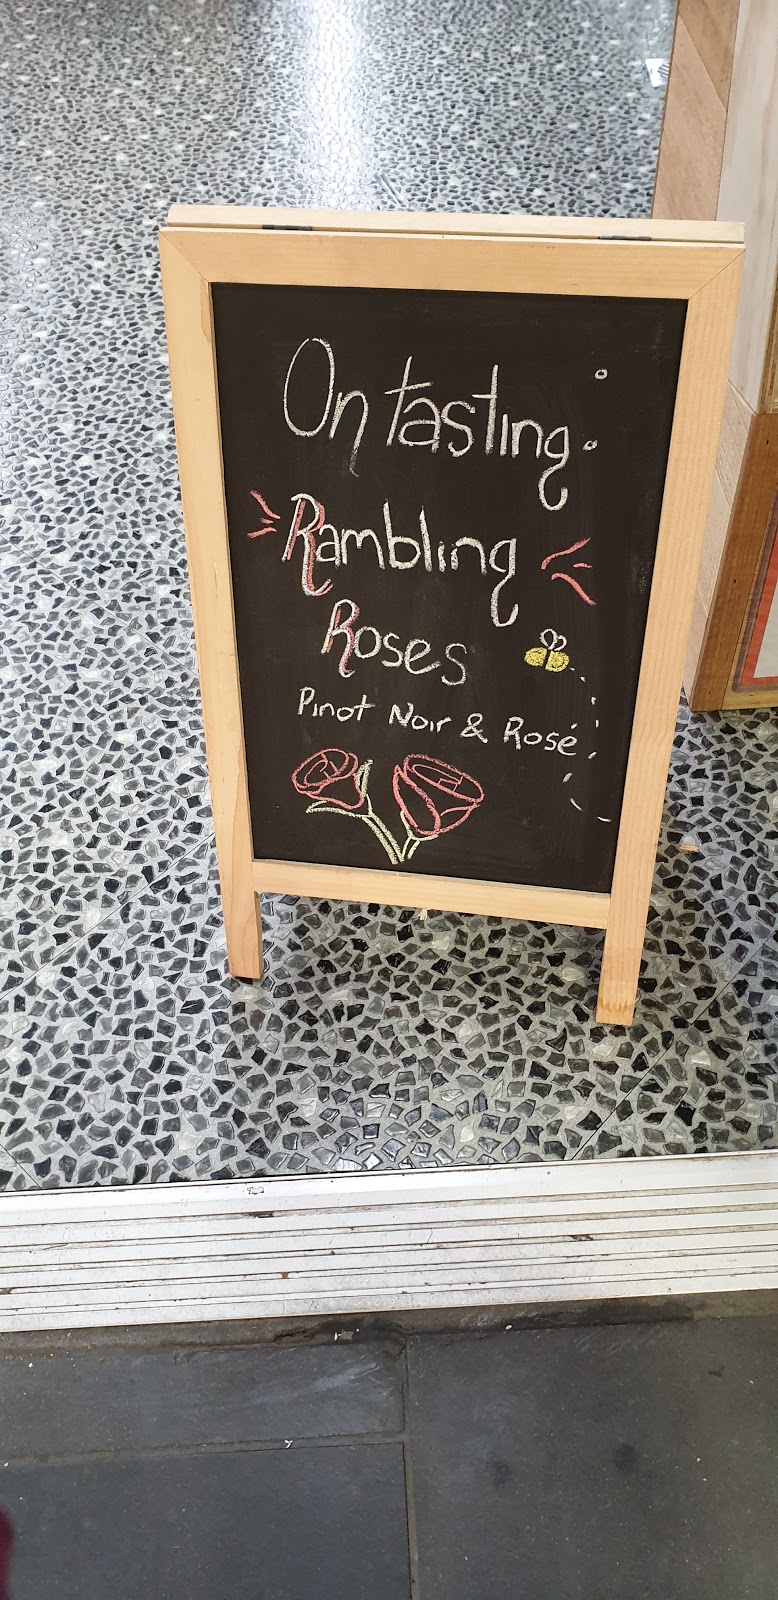 On tasting:
Rambling
Roses
Pinot Noir & Rosé